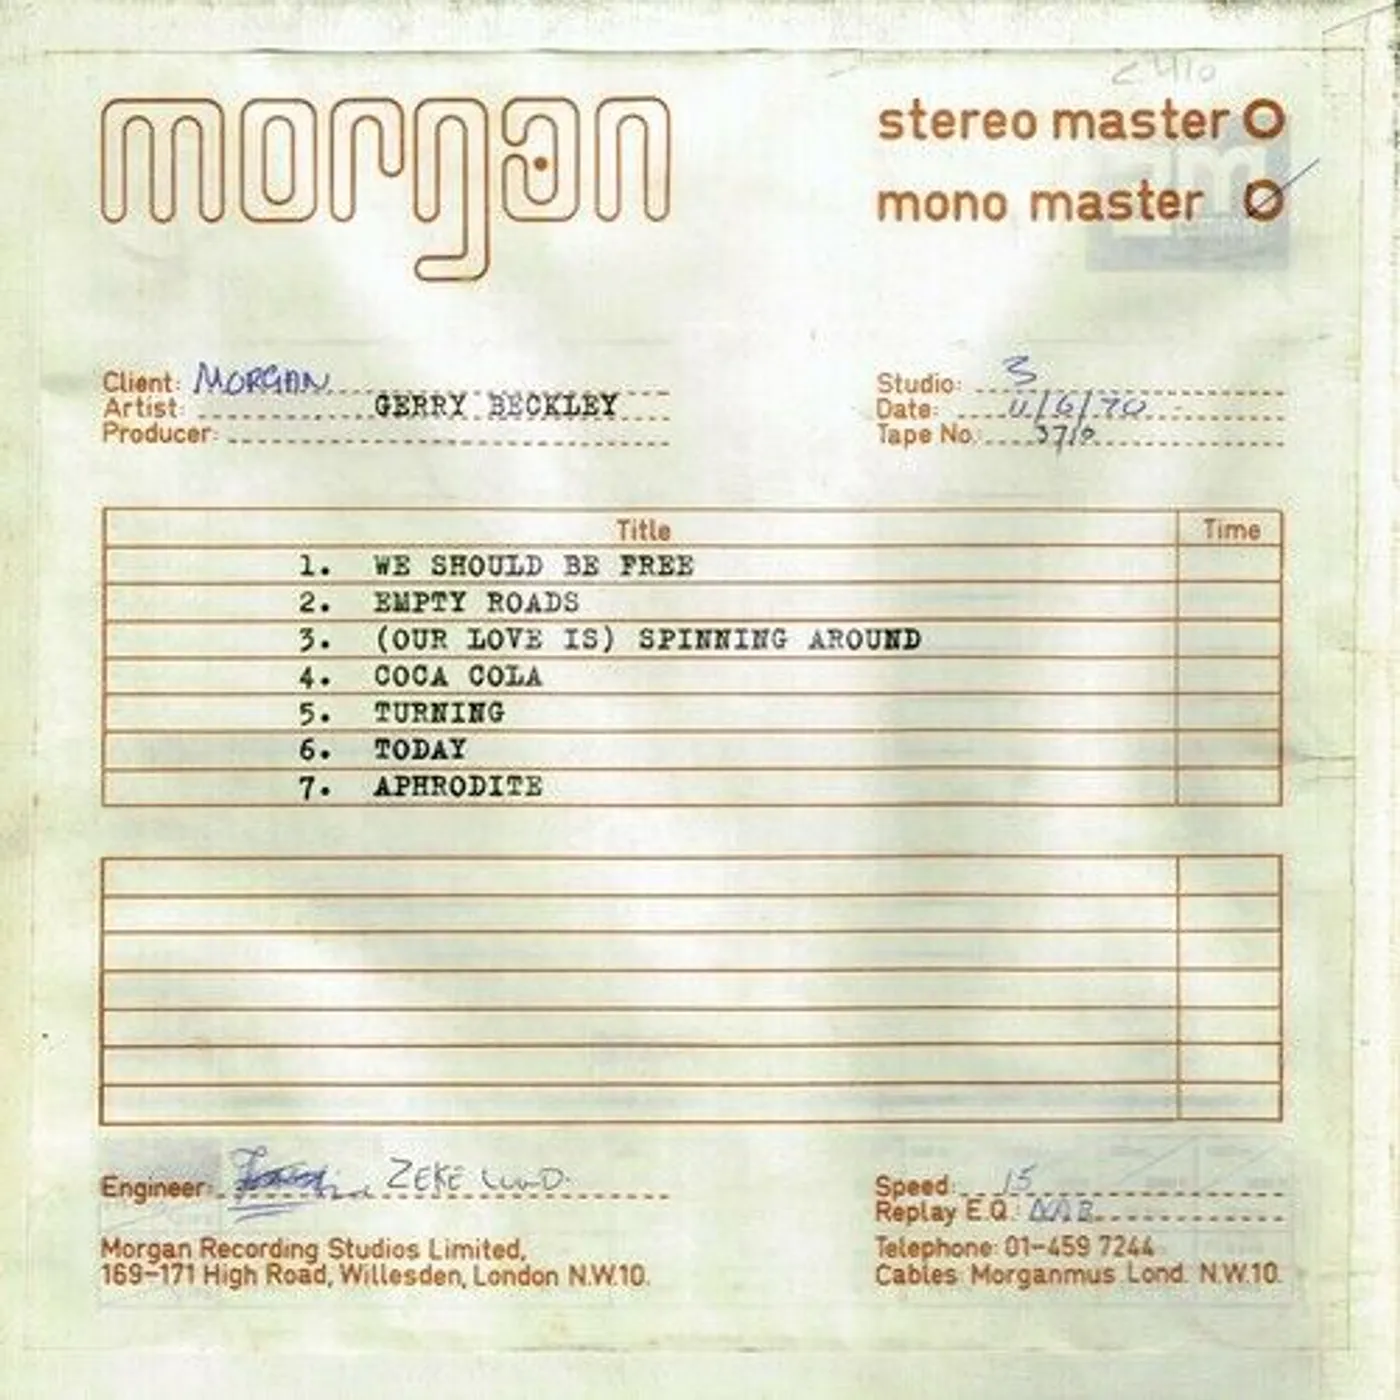 morgan
stereo master
mono master
Client: MORGAN
Artist: GERRY BECKLEY
Producer:
Studio: 3
Date: 11/6/70
Tape No. 3710
Title Time
1. WE SHOULD BE FREE
2. EMPTY ROADS
3. (OUR LOVE IS) SPINNING AROUND
4. COCA COLA
5. TURNING
6. TODAY
7. APHRODITE
Engineer: ZEKE LUND
Speed: 15
Replay E.Q.: NAB
Morgan Recording Studios Limited,
169-171 High Road, Willesden, London N.W.10.
Telephone: 01-459 7244
Cables Morganmus Lond. N.W.10.